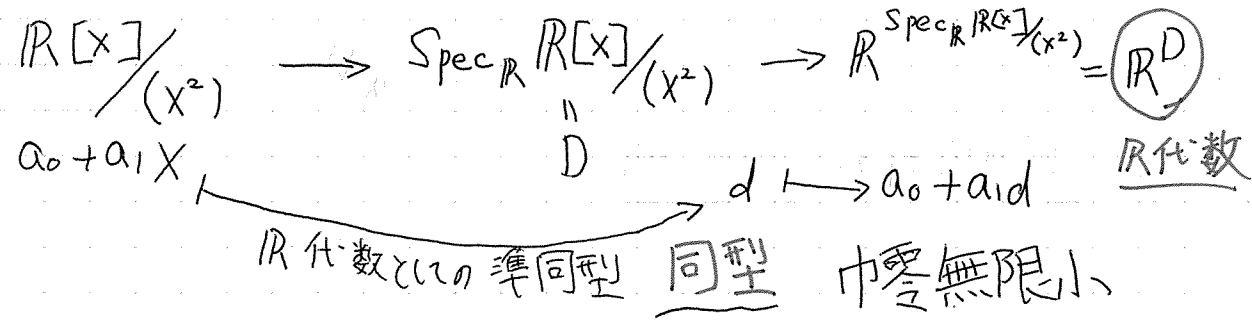 ℝ[X]/(X²) ⟶ Spec_ℝ ℝ[X]/(X²) ⟶ ℝ^{Spec_ℝ ℝ[X]/(X²)} = ℝ^D
‖
D
ℝ代数
a₀ + a₁X ↦ d ⟼ a₀ + a₁d
ℝ代数としての準同型 同型 巾零無限小